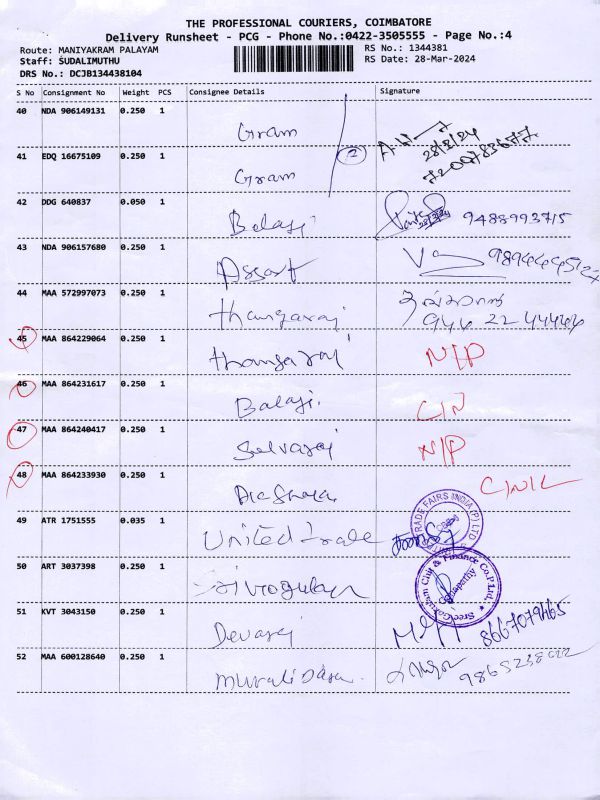 THE PROFESSIONAL COURIERS, COIMBATORE
Delivery Runsheet - PCG - Phone No.:0422-3505555 - Page No.:4
Route: MANIYAKRAM PALAYAM
RS No.: 1344381
Staff: SUDALIMUTHU
RS Date: 28-Mar-2024
DRS No.: DCJB134438104
S No Consignment No Weight PCS Consignee Details Signature
40 NDA 906149131 0.250 1 Gram
28/3/24
7200783677
41 EDQ 16675109 0.250 1 Gram
42 DDG 640837 0.050 1 Balaji 9488993715
43 NDA 906157680 0.250 1
44 MAA 572997073 0.250 1 thangaraj
944 22 44444
45 MAA 864229064 0.250 1 thangaraj N/P
46 MAA 864231617 0.250 1 Balaji. C/N
47 MAA 864240417 0.250 1 Selvaraj N/P
48 MAA 864233930 0.250 1
49 ATR 1751555 0.035 1 United trade
TRADE FAIRS INDIA (P) LTD
50 ART 3037398 0.250 1
Sree Gokulam Chit & Finance Co. P Ltd.
51 KVT 3043150 0.250 1 Devaraj 8667079465
52 MAA 600128640 0.250 1